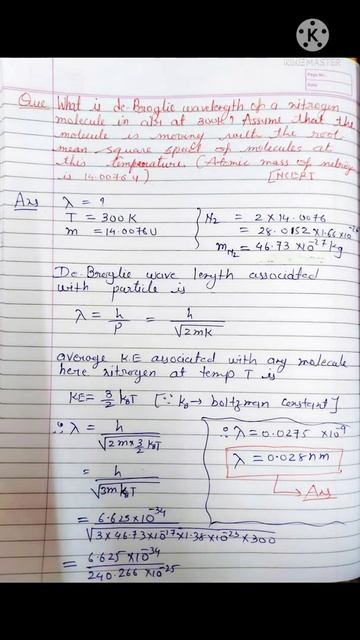 K
KINEMASTER
Page No.:
Date:
Que What is de-Broglie wavelength of a nitrogen
molecule in air at 300K? Assume that the
molecule is moving with the root
mean square speed of molecules at
this temperature. (Atomic mass of nitrogen
is 14.0076 u) [NCERT
Ans λ = ?
T = 300 K
m = 14.0076U
N₂ = 2 × 14.0076
= 28.0152 × 1.66 × 10⁻²⁶
m_N₂ = 46.73 × 10⁻²⁷ kg
De-Broglie wave length associated
with particle is
λ = h/p = h/√2mK
average K.E associated with any molecule
here nitrogen at temp T is
KE = 3/2 k_BT [∵ k_B → boltzman constant]
∴ λ = h/√2m × 3/2 k_BT
= h/√3m k_BT
= 6.625 × 10⁻³⁴/√3 × 46.73 × 10⁻²⁷ × 1.38 × 10⁻²³ × 300
= 6.625 × 10⁻³⁴/240.266 × 10⁻²⁵
∴ λ = 0.0275 × 10⁻⁹
λ = 0.028nm
→ Ans